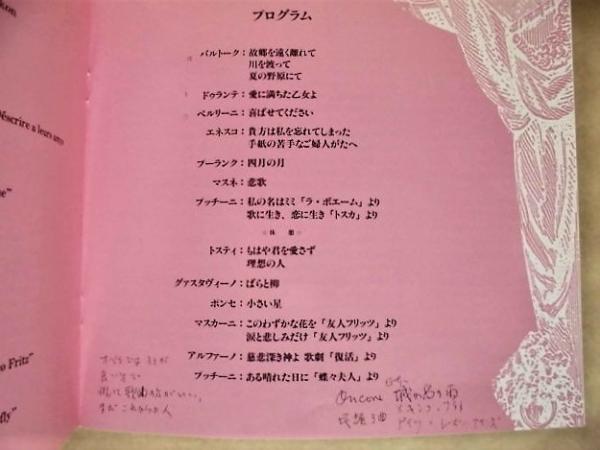 プログラム
kon
バルトーク：故郷を遠く離れて
川を渡って
夏の野原にて
ドゥランテ：愛に満ちた乙女よ
ベルリーニ：喜ばせてください
Déscrire a leurs
エネスコ：貴方は私を忘れてしまった
手紙の苦手なご婦人がたへ
プーランク：四月の月
マスネ：悲歌
プッチーニ：私の名はミミ「ラ・ボエーム」より
歌に生き、恋に生き「トスカ」より
休憩
トスティ：もはや君を愛さず
理想の人
グァスタヴィーノ：ばらと柳
ポンセ：小さい星
マスカーニ：このわずかな花を「友人フリッツ」より
涙と悲しみだけ「友人フリッツ」より
o Fritz"
アルファーノ：慈悲深き神よ 歌劇「復活」より
プッチーニ：ある晴れた日に「蝶々夫人」より
fly"
Oncore 城ヶ島の雨